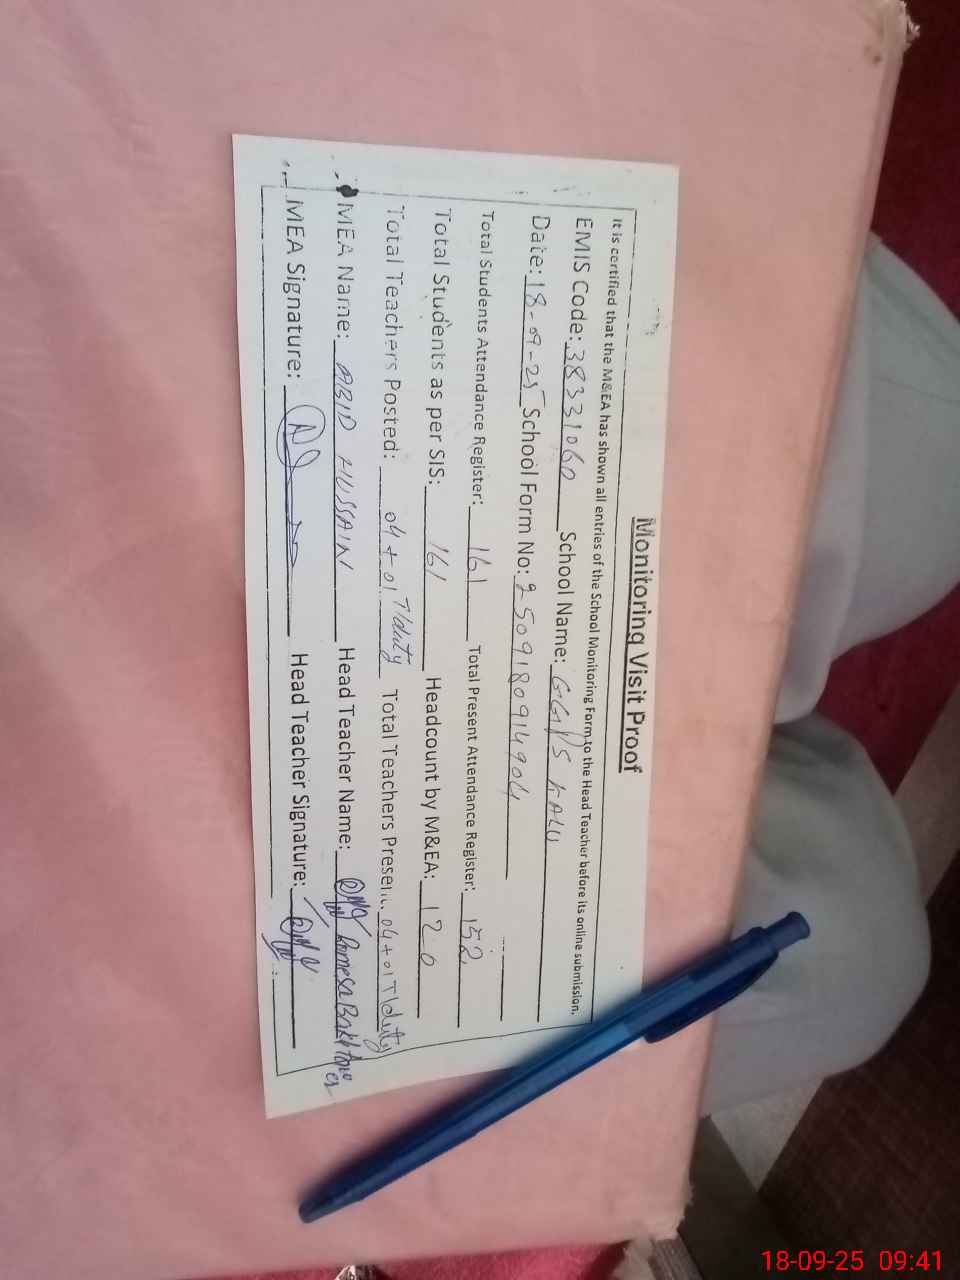 Monitoring Visit Proof
It is certified that the M&EA has shown all entries of the School Monitoring Form to the Head Teacher before its online submission.
EMIS Code: 38331060 School Name: GGPS KALU
Date: 18-09-25 School Form No: 2509180914904
Total Students Attendance Register: 161 Total Present Attendance Register: 152
Total Students as per SIS: 161 Headcount by M&EA: 120
Total Teachers Posted: 04+01 T/duty Total Teachers Present: 04+01 T/duty
MEA Name: ABID HUSSAIN Head Teacher Name:
MEA Signature: Head Teacher Signature:
18-09-25 09:41